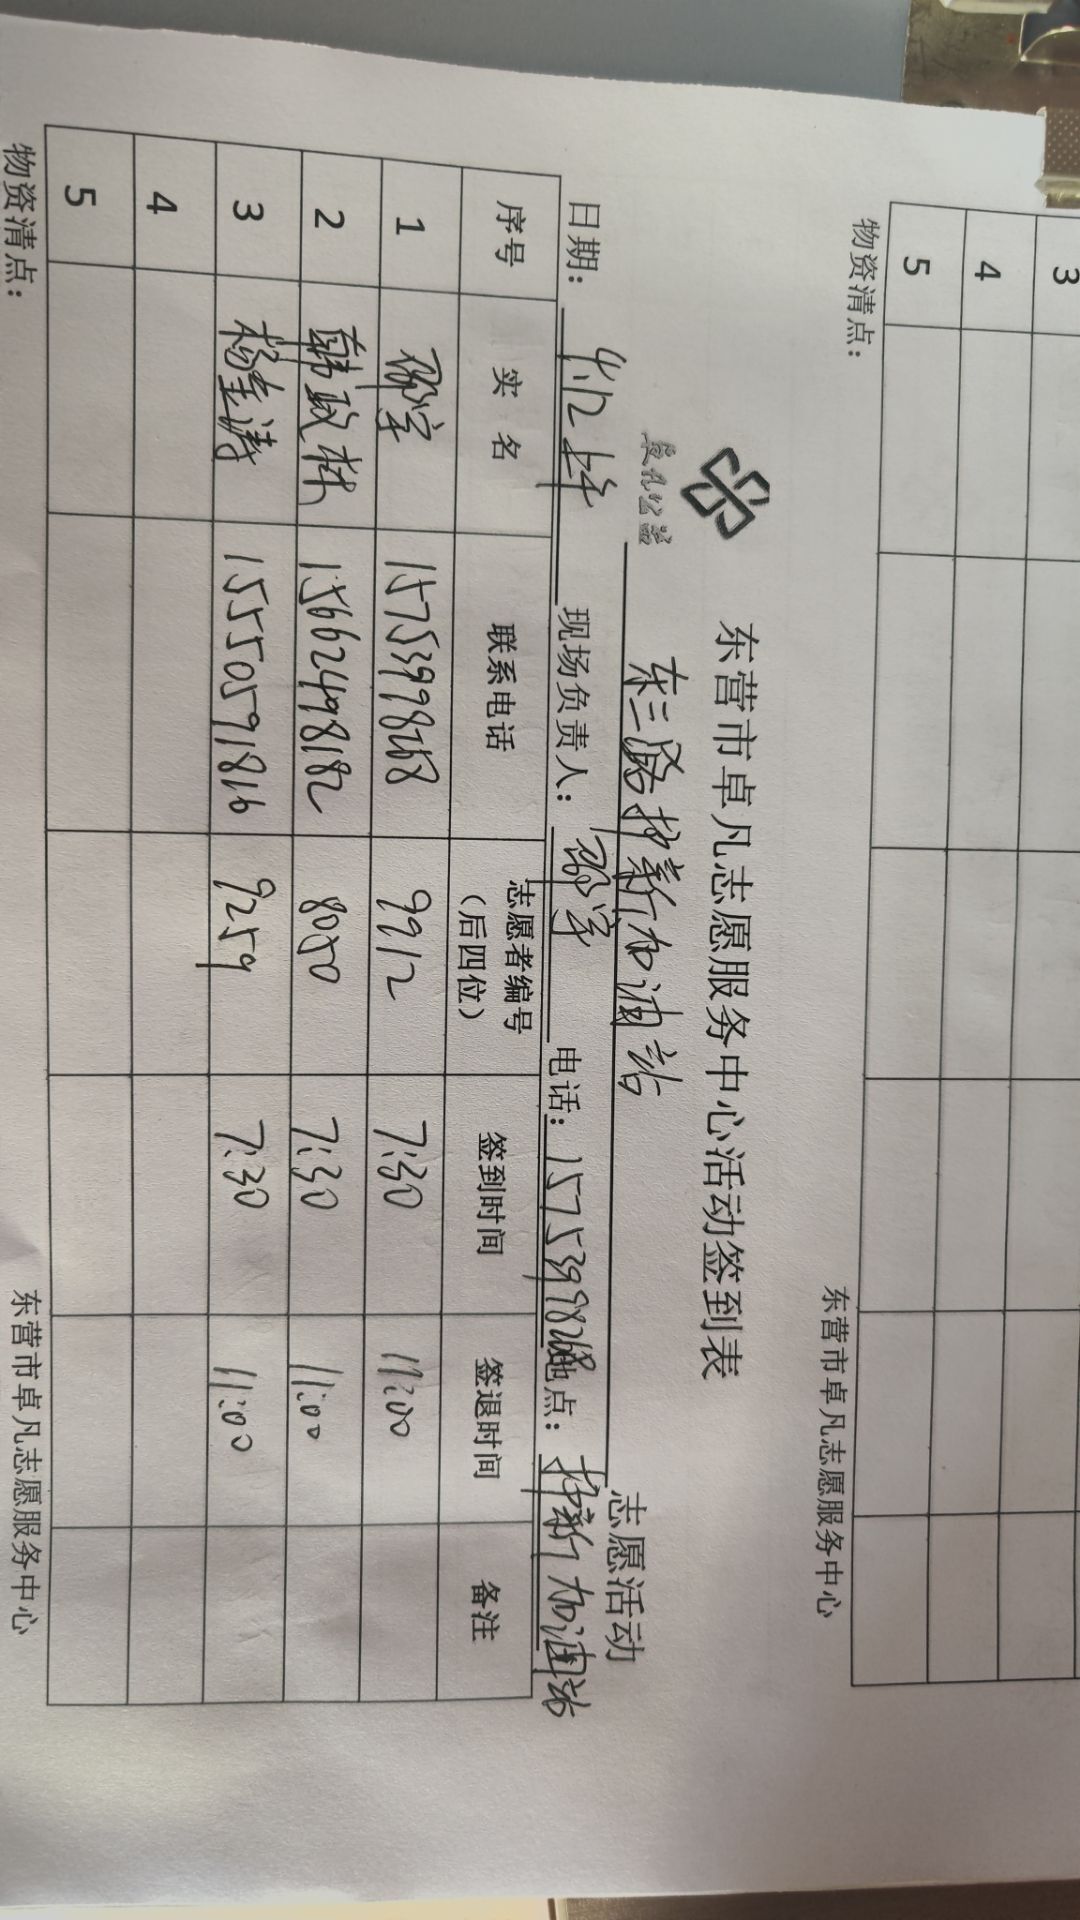 3
4
5
物资清点：
东营市卓凡志愿服务中心
东营市卓凡志愿服务中心活动签到表
卓凡公益
东三路护新加油站 志愿活动
日期：4.12上午 现场负责人： 电话：15753998268 地点：护新加油站
序号 实名 联系电话 志愿者编号（后四位） 签到时间 签退时间 备注
1 15753998268 9912 7:30 11:00
2 韩政林 15662498182 8050 7:30 11:00
3 杨圭涛 15550591816 9259 7:30 11:00
4
5
物资清点：
东营市卓凡志愿服务中心